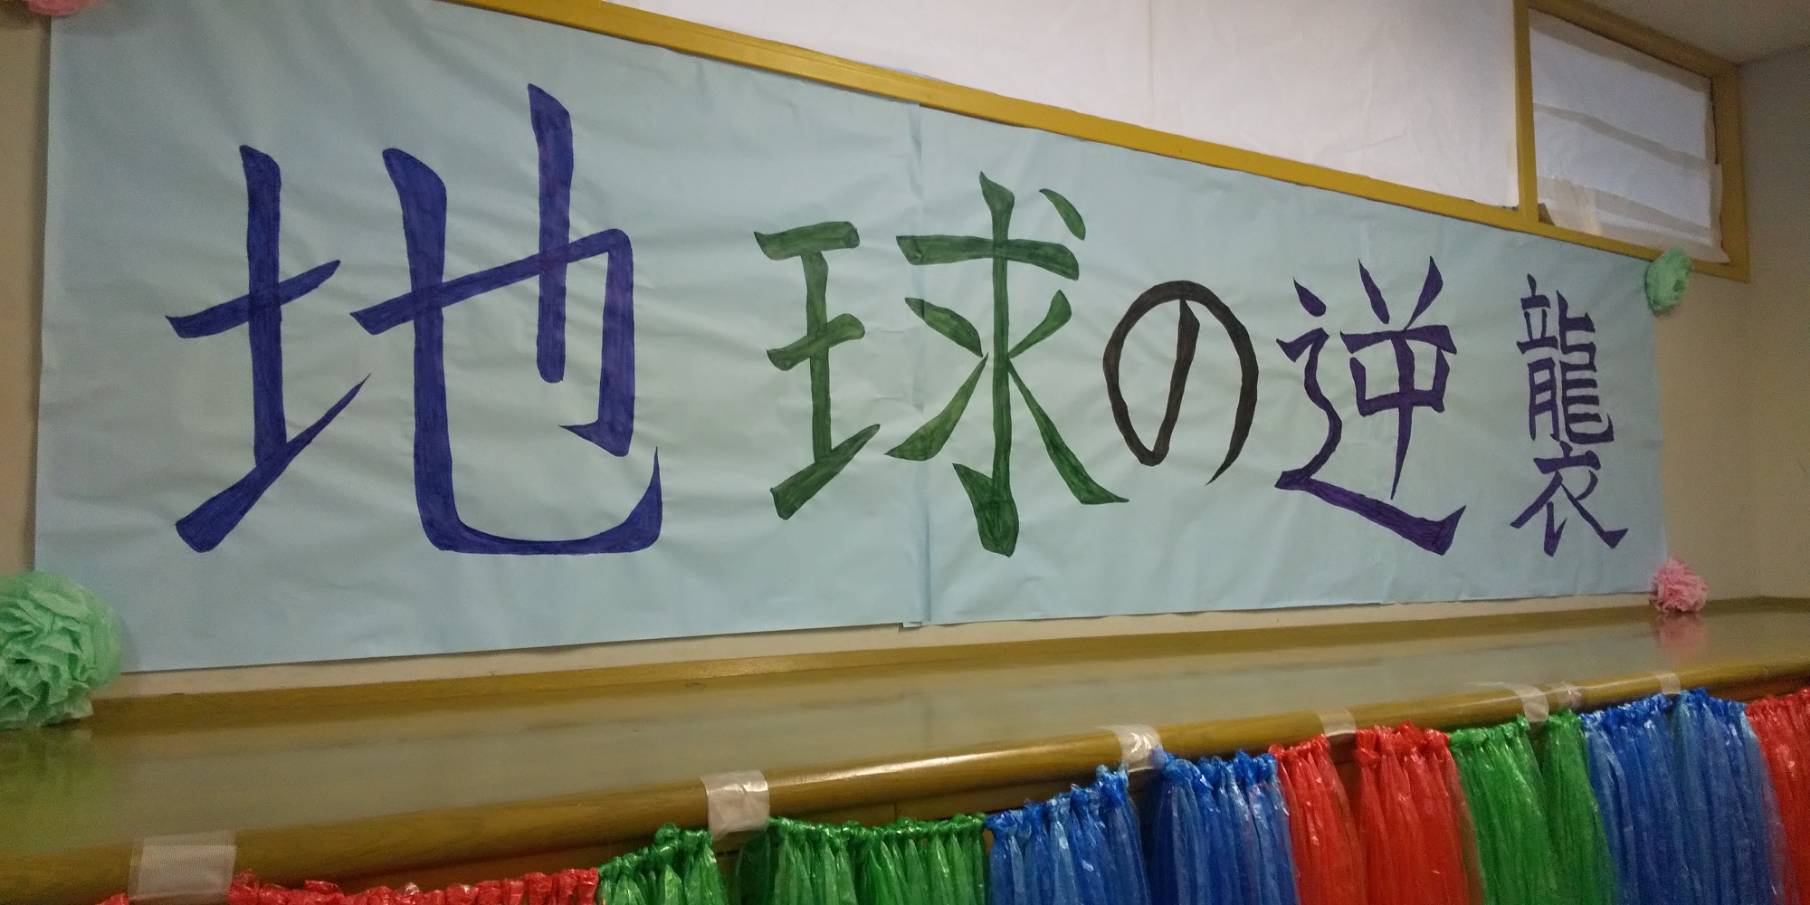 地球の逆襲